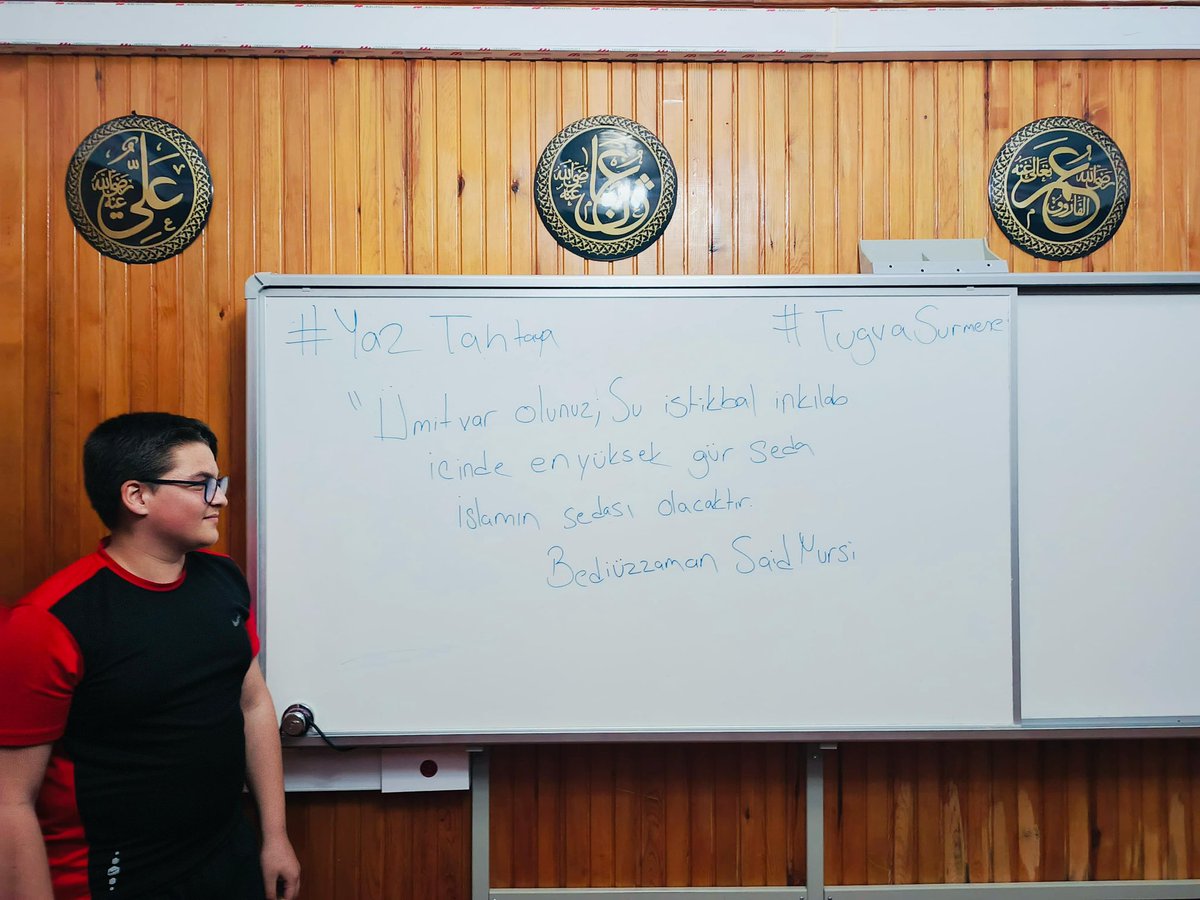 علي رضي الله عنه
عثمان رضي الله عنه
عمر الفاروق رضي الله تعالى عنه
#Yaz Tahtaya #TugvaSurmene
"Ümitvar olunuz; Su istikbal inkılab
icinde en yüksek gür seda
islamın sedası olacaktır.
Bediüzzaman Said Nursi